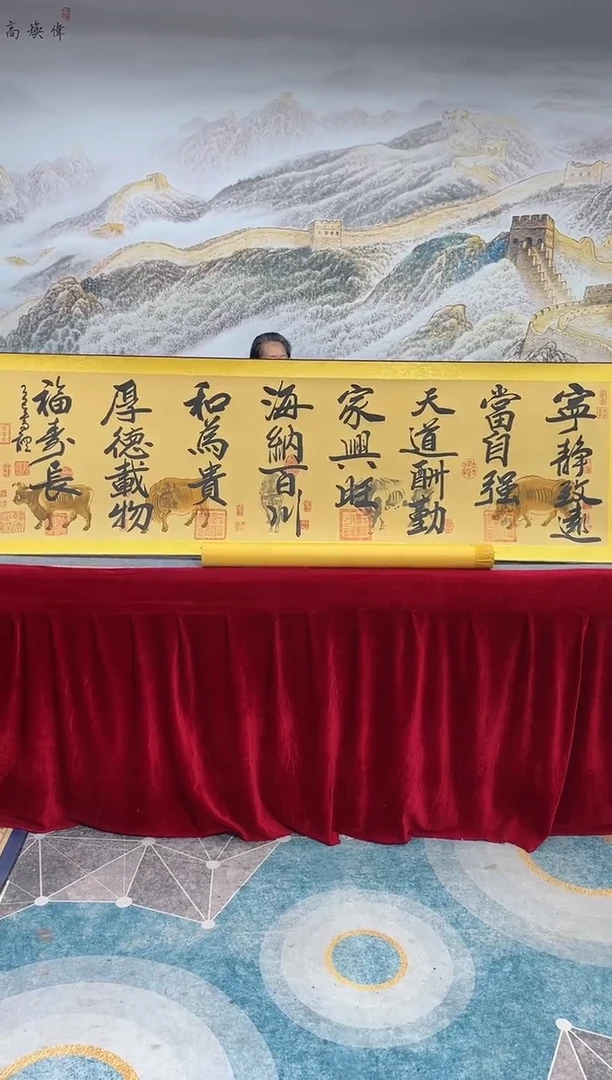 高焕偉
寧静致遠
當自强
天道酬勤
家興旺
海納百川
和為貴
厚德載物
福寿長